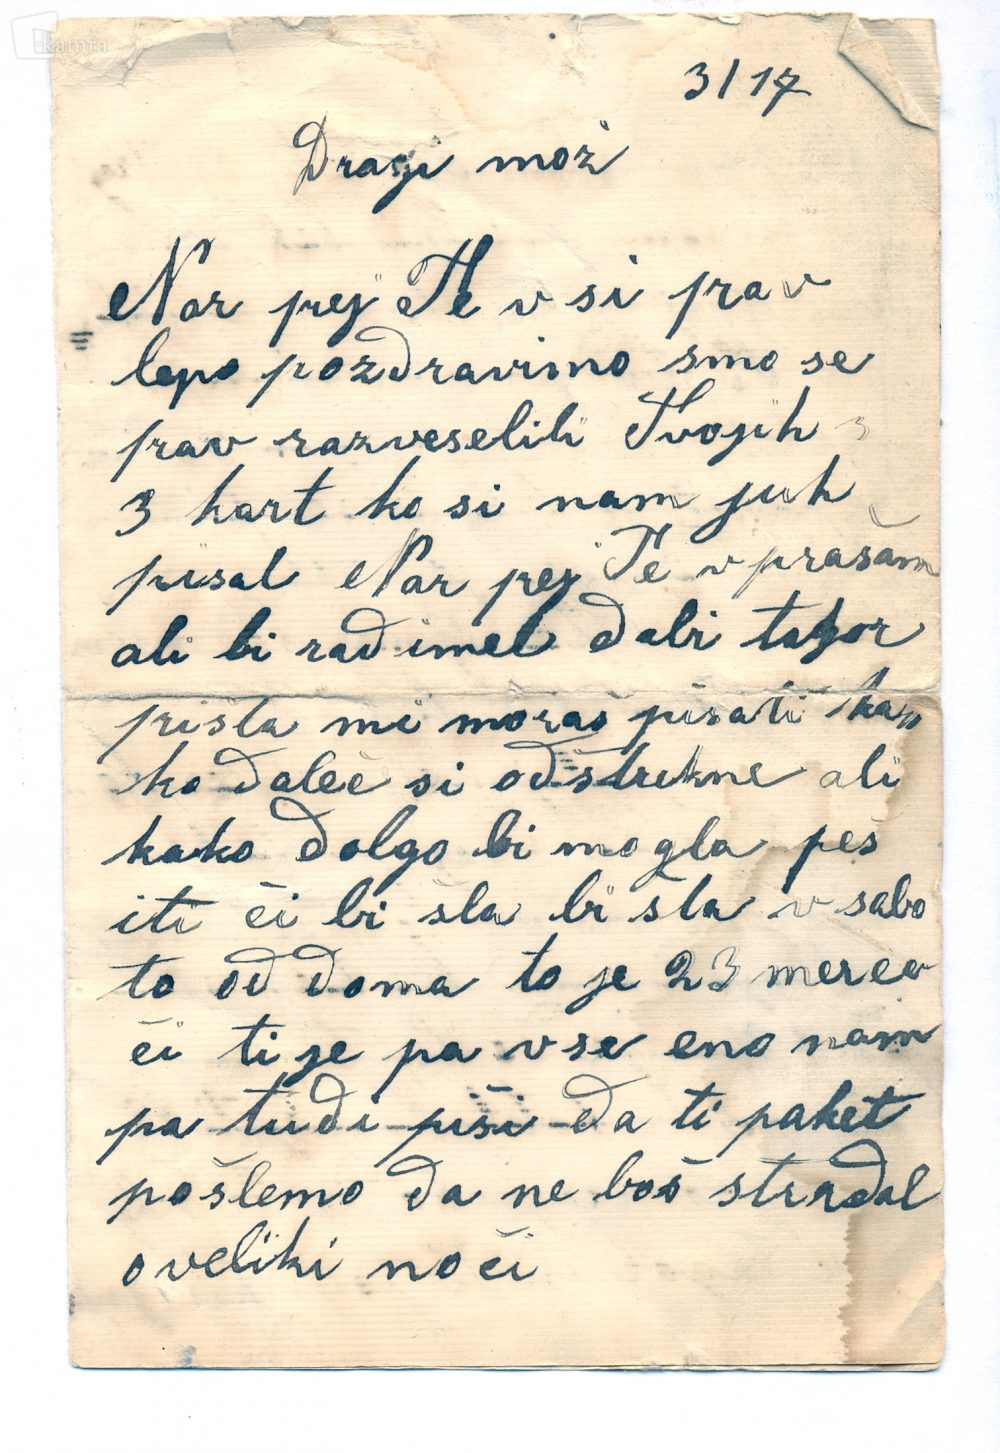 kamra
3/17
Dragi mož
Nar prej Te vsi prav
lepo pozdravimo smo se
prav razveselili Tvojih 3
3 kart ko si nam juh
pisal Nar prej Te vprašam
ali bi rad imel dabi
prišla mi moraš pisati
ko daleč si od štrekne ali
kako dolgo bi mogla peš
iti či bi šla bi šla v sabo
to od doma to je 23 merca
či ti je pa vse eno nam
pa tudi piši da ti paket
pošlemo da ne boš stradal
o veliki noči